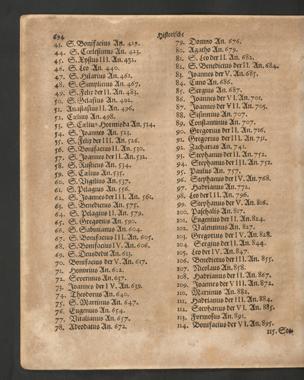 694
Historische
43. S. Bonifacius An. 419.
44. S. Coelestinus An. 423.
45. S. Xystus III. An. 432.
46. S. Leo An. 440.
47. S. Hilarius An. 461.
48. S. Simplicius An. 467.
49. S. Felix der II. An. 483.
50. S. Gelasius An. 492.
51. S. Anastasius II. An. 496.
52. Coelius An. 498.
53. S. Coelius Hormisda An. 514.
54. S. Joannes An. 523.
55. S. Felix der III An. 526.
56. S. Bonifacius II An. 530.
57. S. Joannes der II. An. 532.
58. S. An. 534.
59. S. Coelius An. 535.
60. S. Vigilius An. 537.
61. S. Pelagius An. 556.
62. S. Joannes der III. An. 561.
63. S. Benedictus An. 575.
64. S. Pelagius II. An. 579.
65. S. Gregorius An. 590.
66. S. Sabinianus An. 604.
67. S. Bonifacius III. An. 605.
68. S. Bonifacius IV. An. 606.
69. S. Deusdedit An. 613.
70. Bonifacius der V. An. 617.
71. Honorius An. 622.
72. Severinus An. 637.
73. Joannes der IV. An. 639.
74. Theodorus An. 640.
75. S. Martinus An. 647.
76. Eugenius An. 654.
77. Vitalianus An. 657.
78. Adeodatus An. 672.
79. Domno An. 676.
80. Agatho An. 679.
81. S. Leo der II. An. 682.
82. S. Benedictus der II. An. 684.
83. Joannes der V. An. 685.
84. Cuno An. 686.
85. Sergius An. 687.
86. Joannes der VI. An. 701.
87. Joannes der VII. An. 705.
88. Sisinnius An. 707.
89. Constantinus An. 707.
90. Gregorius der II. An. 716.
91. Gregorius der III. An. 731.
92. Zacharias An. 741.
93. Stephanus der II. An. 752.
94. Stephanus der III. An. 752.
95. Paulus An. 757.
96. Stephanus der IV. An. 768.
97. Hadrianus An. 772.
98. Leo der III. An. 796.
99. Stephanus der V. An. 816.
100. Paschalis An. 817.
101. Eugenius der II. An. 824.
102. Valentinus An. 827.
103. Gregorius der IV. An. 828.
104. Sergius der II. An. 844.
105. Leo der IV. An. 847.
106. Benedictus der III. An. 855.
107. Nicolaus An. 858.
108. Hadrianus der II. An. 867.
109. Joannes der VIII. An. 872.
110. Martinus An. 882.
111. Hadrianus der III. An. 884.
112. Stephanus der VI. An. 885.
113. Formosus An. 891.
114. Bonifacius der VI. An. 895.
115. Ste